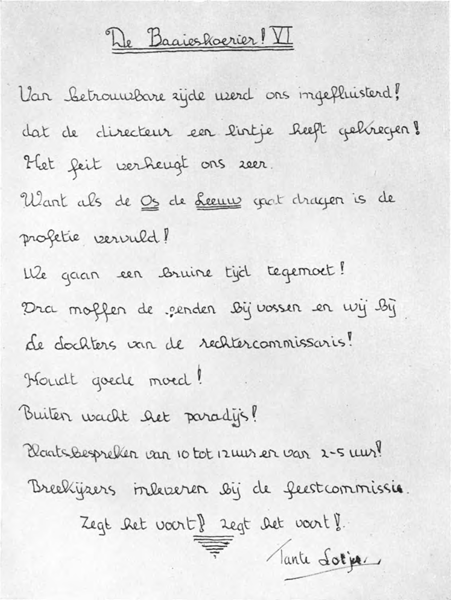 De Baaieskoerier! VI
Van betrouwbare zijde werd ons ingefluisterd!
dat de directeur een lintje heeft gekregen!
Het feit verheugt ons zeer.
Want als de Os de Leeuw gaat dragen is de
profetie vervuld!
We gaan een bruine tijd tegemoet!
Dra moffen de eenden bij vossen en wij bij
de dochters van de rechtercommissaris!
Houdt goede moed!
Buiten wacht het paradijs!
Plaatsbespreken van 10 tot 12 uur en van 2-5 uur!
Breekijzers inleveren bij de feestcommissie.
Zegt het voort! zegt het voort!
Tante Lotje